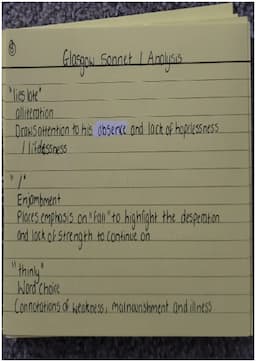 Glasgow Sonnet 1 Analysis
"lies late"
alliteration
Draws attention to his absence and lack of hopelessness
/ lifelessness
"/"
Enjambment
Places emphasis on "fall" to highlight the desperation
and lack of strength to continue on
"thinly"
Word choice
Connotations of weakness, malnourishment and illness